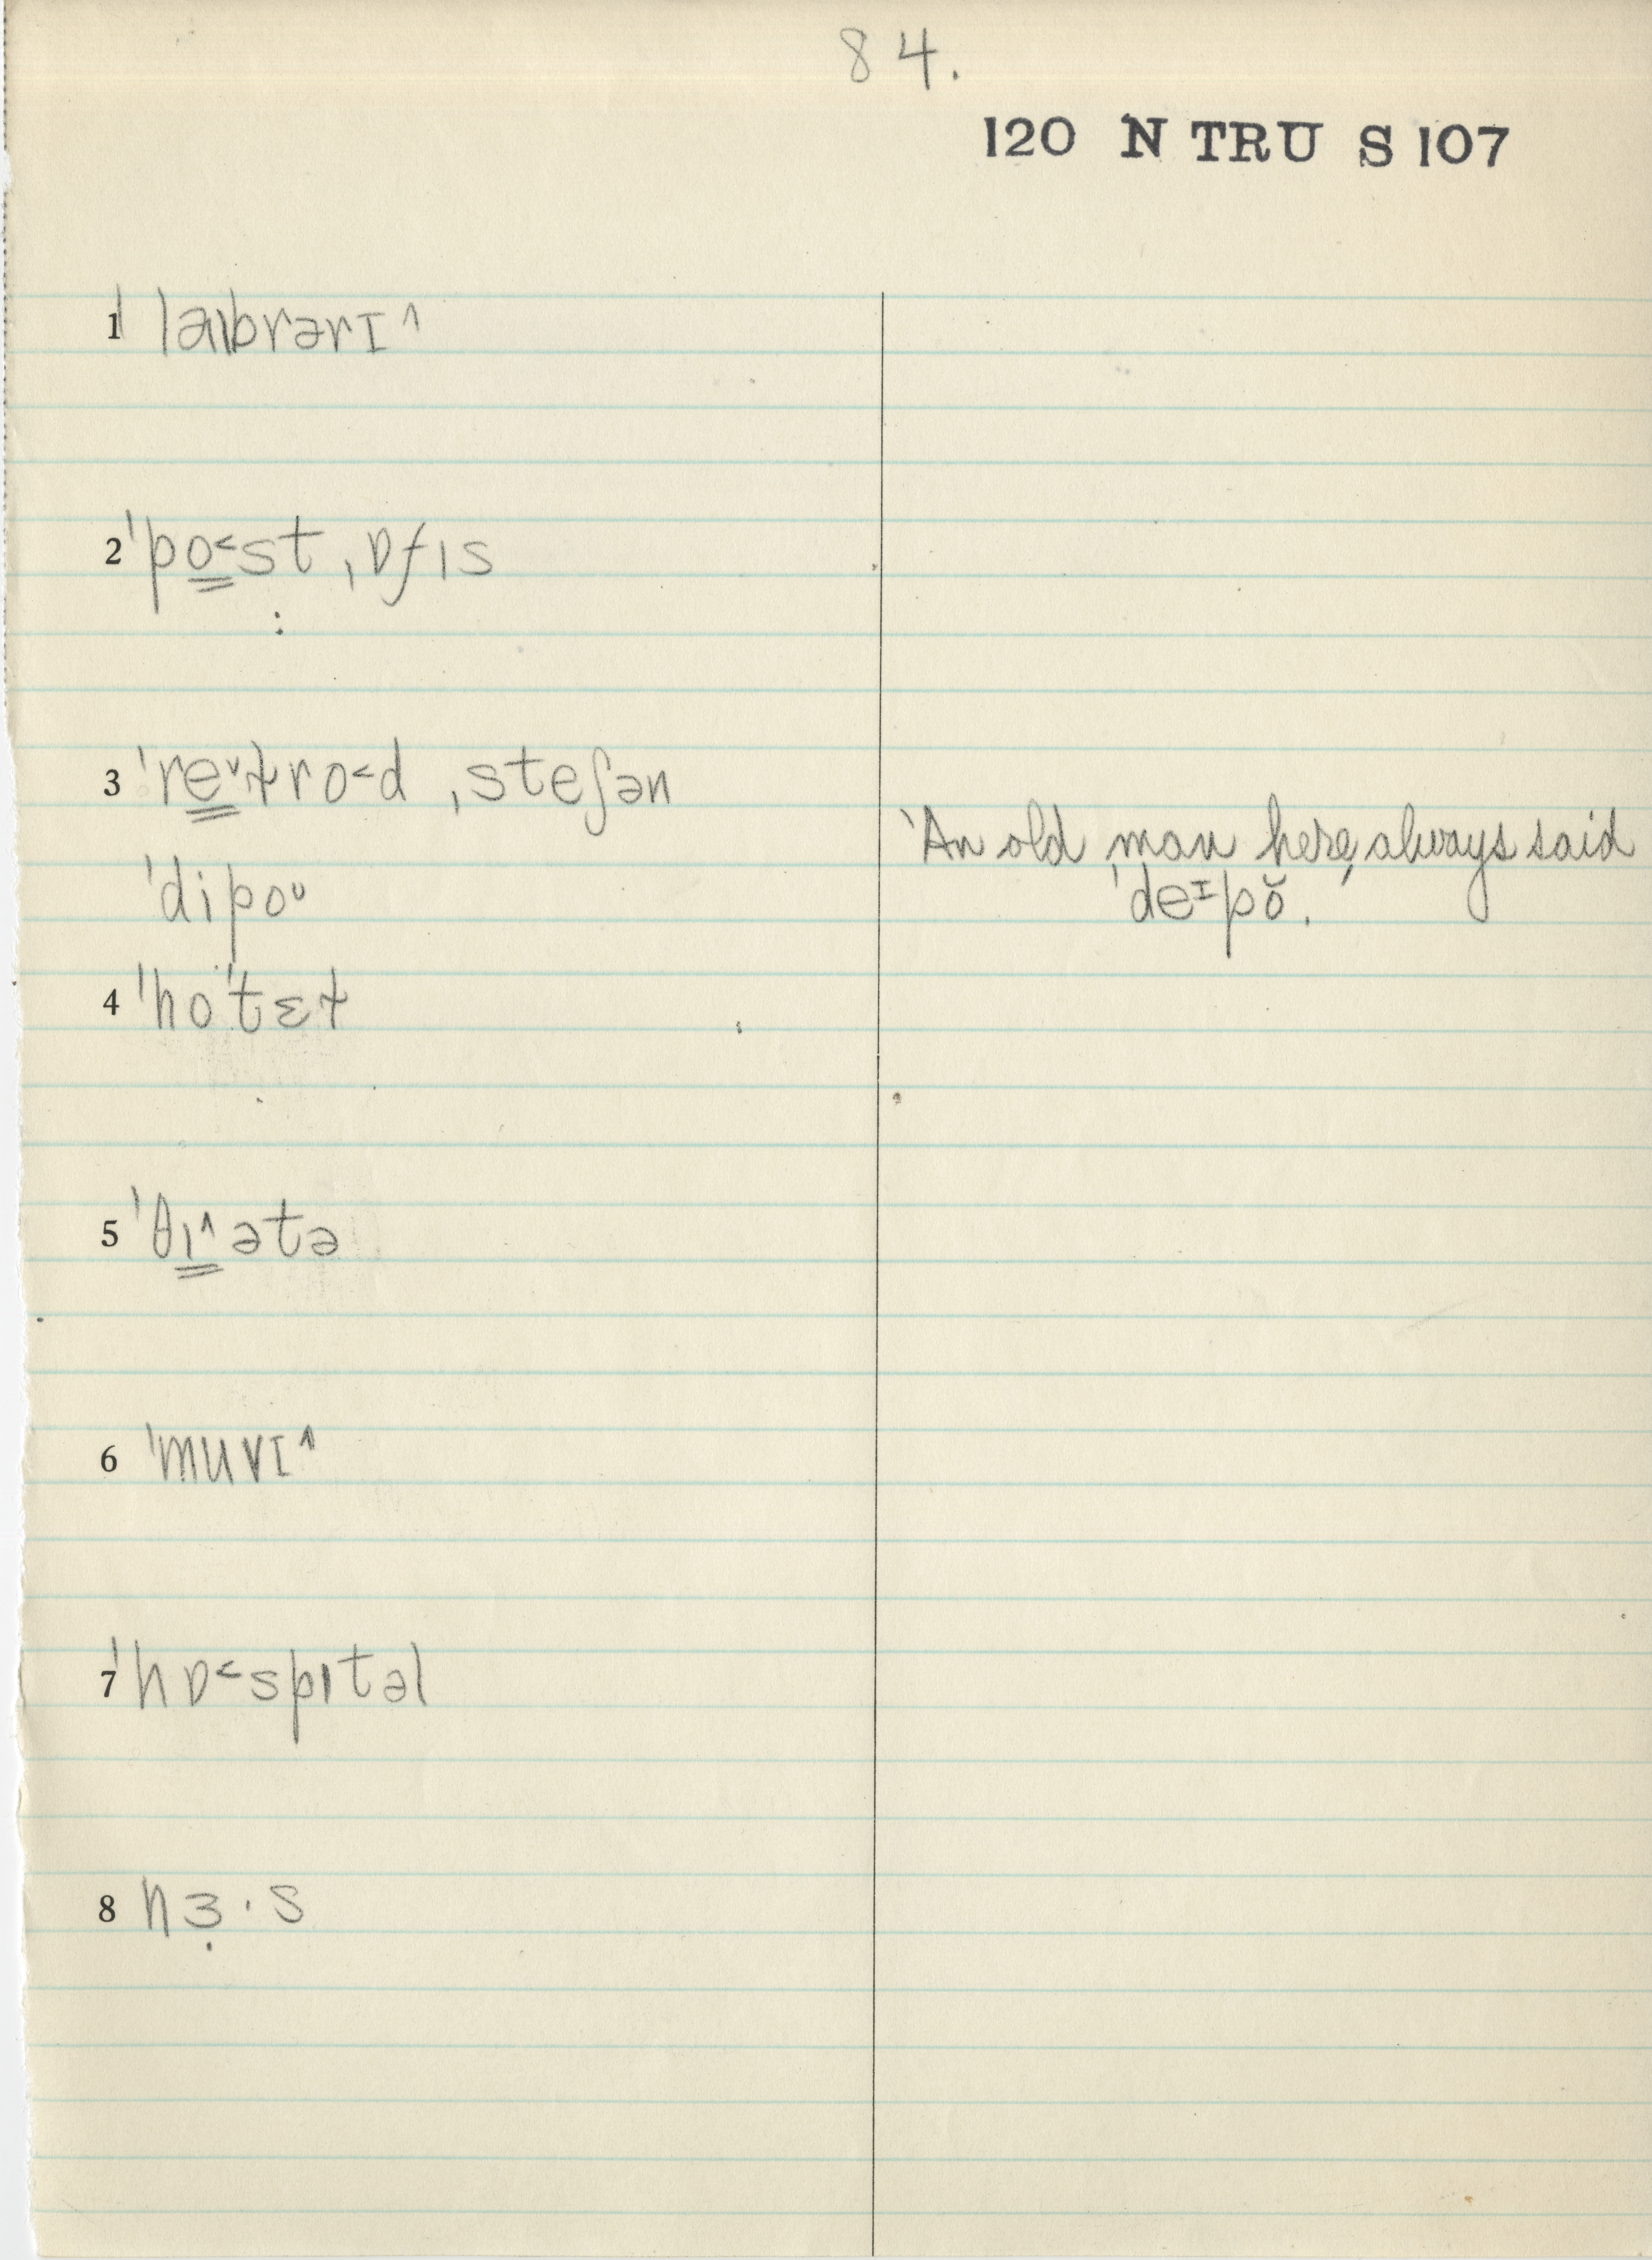 84.
120 N TRU S 107
1 ˈlaɪbrərɪ^
2 ˈpo˂st ˌɒfɪs
3 ˈre˅ɫro˂d ˌsteʃən
'An old man here, always said
ˈdipoᴜ
ˈdeɪpŏ.'
4 ˈhoˈtɛɫ
5 ˈθɪ^ətə
6 ˈmuvɪ^
7 ˈhɒ˂spɪtəl
8 nɜ̣·s